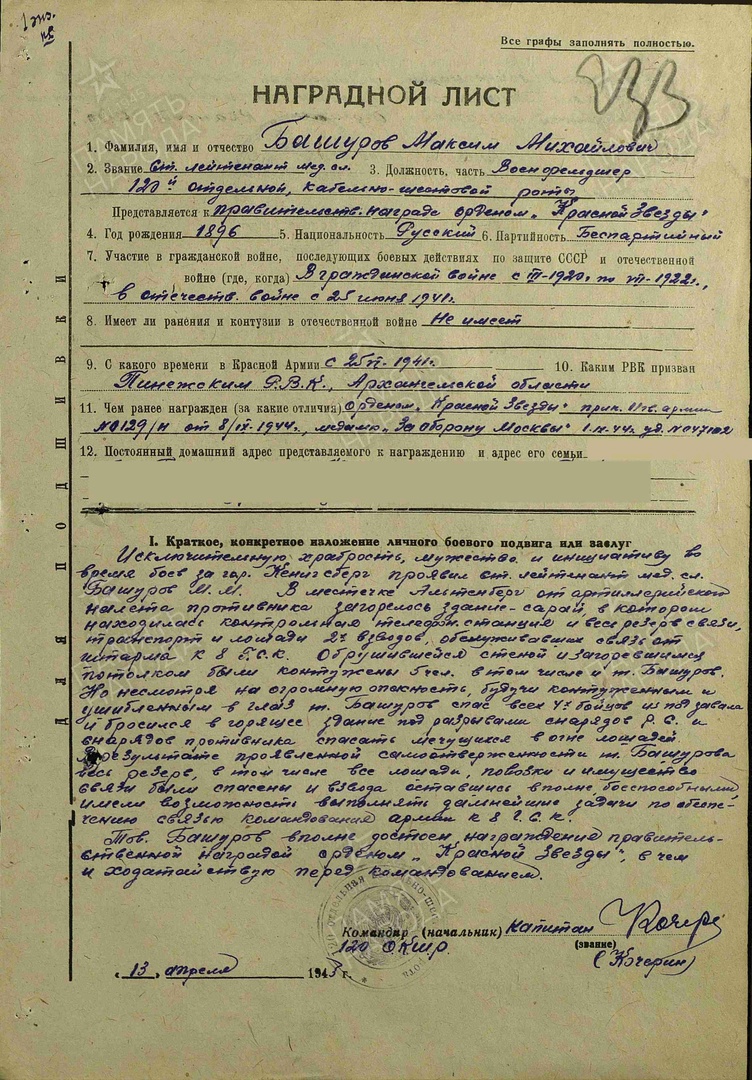 1 экз.
Все графы заполнять полностью.
233
НАГРАДНОЙ ЛИСТ
1. Фамилия, имя и отчество Башуров Максим Михайлович
2. Звание ст. лейтенант мед. сл. 3. Должность, часть Военфельдшер
120й отдельной, кабельно-шестовой роты
Представляется к правительств. награде орденом „Красной Звезды"
4. Год рождения 1896 5. Национальность Русский 6. Партийность Беспартийный
7. Участие в гражданской войне, последующих боевых действиях по защите СССР и отечественной
войне (где, когда) В гражданской войне с III-1920г. по VII-1922г.,
в отечеств. войне с 25 июня 1941г.
8. Имеет ли ранения и контузии в отечественной войне Не имеет
9. С какого времени в Красной Армии с 25 VI-1941г. 10. Каким РВК призван
Пинежским Р.В.К., Архангельской области
11. Чем ранее награжден (за какие отличия) Орденом „Красной Звезды" прик. 11 гв. армии
№ 0129/н от 8/IX-1944г., медалью „За оборону Москвы"
12. Постоянный домашний адрес представляемого к награждению и адрес его семьи
ДЛЯ ПОДШИВКИ
I. Краткое, конкретное изложение личного боевого подвига или заслуг
Исключительную храбрость, мужество и инициативу во
время боев за гор. Кенигсберг проявил ст. лейтенант мед. сл.
Башуров М.М. В местечке Альтенберг от артиллерийского
налета противника загорелось здание-сарай, в котором
находилась контрольная телефон. станция и весь резерв связи,
транспорт и лошади 2х взводов, обслуживавших связь от
штарма к 8 Г.С.К. Обрушившейся стеной и загоревшимся
потолком были контужены 5 чел. в том числе и т. Башуров.
Но несмотря на огромную опасность, будучи контуженным и
ушибленным в глаз т. Башуров спас всех 4х бойцов из под завала
и бросился в горящее здание под разрывами снарядов Р.С. и
снарядов противника спасать мечущихся в огне лошадей.
В результате проявленной самоотверженности т. Башурова
весь резерв, в том числе все лошади, повозки и имущество
связи были спасены и взвода оставшись вполне боеспособными,
имели возможность выполнять дальнейшие задачи по обеспе-
чению связью командования армии к 8 Г.С.К.
Тов. Башуров вполне достоен награждения правитель-
ственной наградой орденом „Красной Звезды", в чем
и ходатайствую перед командованием.
Командир (начальник) капитан Кочерг
120 ОКШР. (звание)
(Кочерин)
„13„ апреля 1945 г.